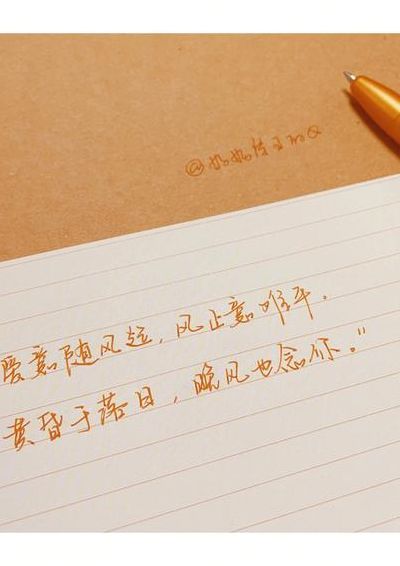 爱意随风起，风止意难平.
黄昏于落日，晚风也念你。"